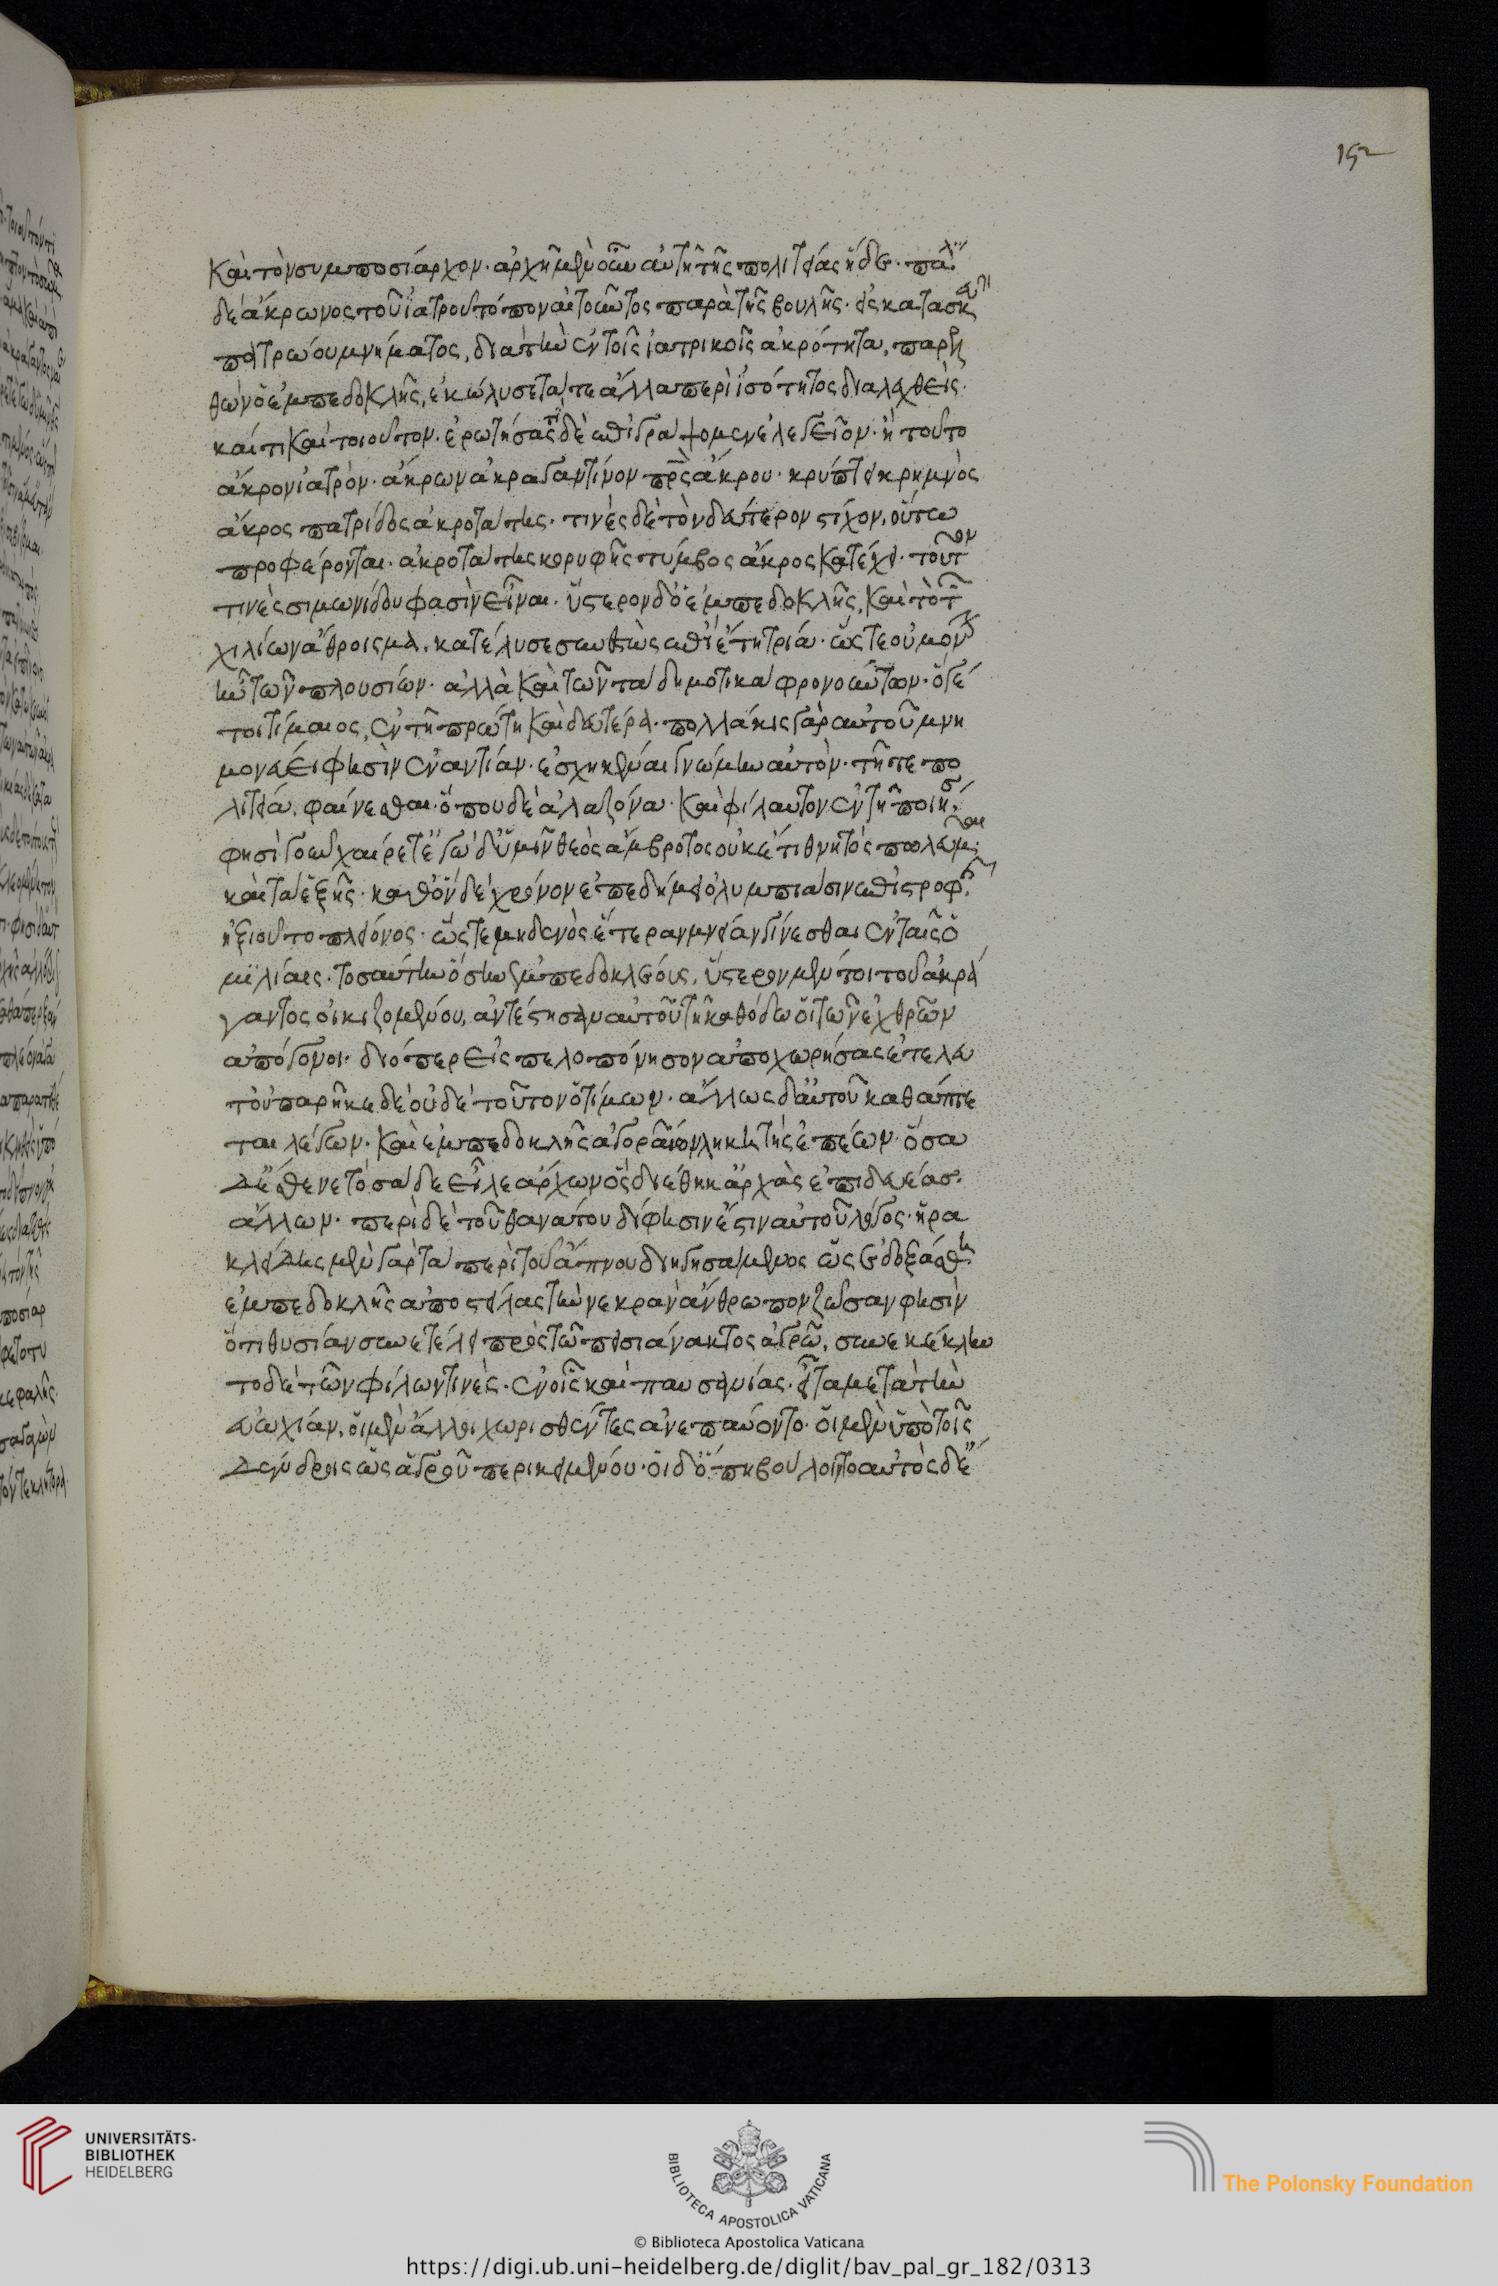 152
καὶ τὸν συμποσίαρχον· ἀρχὴ μὲν οὖν αὐτῇ τῆς πολιτείας ἥδε· πάλιν
δὲ ἄκρωνος τοῦ ἰατροῦ τόπον αἰτοῦντος παρὰ τῆς βουλῆς· εἰς κατασκευὴν
πατρώου μνήματος, διὰ τὴν ἐν τοῖς ἰατρικοῖς ἀκρότητα, παρελ
θὼν ὁ ἐμπεδοκλῆς, ἐκώλυσε τά τε ἄλλα περὶ ἰσότητος διαλεχθείς·
καί τι καὶ τοιοῦτον· ἐρωτήσας τί δὲ ἐπιγράψομεν ἐλεγεῖον· ἢ τοῦτο
ἄκρον ἰατρὸν· ἄκρων ἀκραγαντίνον πρς ἄκρου· κρύπτει κρημνὸς
ἄκρος πατρίδος ἀκροτάτης· τινὲς δὲ τὸν δεύτερον στίχον, οὕτω
προφέρονται· ἀκροτάτης κορυφῆς τύμβος ἄκρος κατέχει· τοῦτον
τινὲς σιμωνίδου φασὶν εἶναι· ὕστερον δ' ὁ ἐμπεδοκλῆς, καὶ τὸ τῶν
χιλίων ἄθροισμα, κατέλυσε συνεστὼς ἐπὶ ἔτη τρία· ὥστε οὐ μόνον
ἦν τῶν πλουσίων· ἀλλὰ καὶ τῶν τὰ δημοτικὰ φρονούντων· ὅ γέ
τοι τίμαιος, ἐν τῇ πρώτῃ καὶ δευτέρᾳ· πολλάκις γὰρ αὐτοῦ μνη
μονεύει φησὶν ἐναντίαν· ἐσχηκέναι γνώμην αὐτὸν· τῇ τε πο
λιτείᾳ, φαίνεσθαι· ὅπου δὲ ἀλαζόνα· καὶ φίλαυτον ἐν τῇ ποιήσει
φησὶ γοῦν χαίρετε ἐγὼ δ' ὑμῖν θεὸς ἄμβροτος οὐκέτι θνητὸς πωλεῦμαι
καὶ τὰ ἑξῆς· καθ' ὃν δὲ χρόνον ἐπεδήμει ὀλυμπιάσιν ἐπιστροφῆς
ἠξιοῦτο πλείονος· ὥστε μηδενὸς ἑτέραν μνείαν γίνεσθαι ἐν ταῖς ὁ
μιλίαις· τοσαύτην ὅσην ἐμπεδοκλέους, ὕστερον μέν τοι τοῦ ἀκρά
γαντος οἰκιζομένου, ἀντέστησαν αὐτοῦ τῇ καθόδῳ οἱ τῶν ἐχθρῶν
ἀπόγονοι· διόπερ εἰς πελοπόνησον ἀποχωρήσας ἐτελεύ
τ οὐ παρῆκε δὲ οὐδὲ τοῦτον ὁ τίμων· ἀλλ' ὡς δ' αὐτοῦ καθάπτε
ται λέγων· καὶ ἐμπεδοκλῆς ἀγοραίων ληκητὴς ἐπέων· ὅσα
δ' ἔσθενε τόσα δὲ εἷλε ἀρχων ὃς διέθηκ' ἀρχὰς ἐπιδευέας·
ἄλλων· περὶ δὲ τοῦ θανάτου δίφησιν ἔστιν αὐτοῦ λόγος· ἡρα
κλείδης μὲν γὰρ τὰ περὶ τοῦ ἄπνου διηγησάμενος ὡς ἐδοξάσθη
ἐμπεδοκλῆς ἀποστείλας τὴν νεκρὰν ἄνθρωπον ζῶσαν φησὶν
ὅτι θυσίαν συνετέλει πρὸς τῷ πεισιάνακτος ἀγρῷ, συνεκέκλην
το δὲ τῶν φίλων τινὲς· ἐν οἷς καὶ παυσανίας· εἶτα μετὰ τὴν
εὐωχίαν, οἱ μὲν ἄλλοι χωρισθέντες ἀνεπαύοντο· οἱ μὲν ὑπὸ τοῖς
δένδροις ὡς ἀγροῦ περικειμένου· οἱ δ' ὅπη βούλοιντο αὐτὸς δ' ἔ
UNIVERSITÄTS-
BIBLIOTHEK
HEIDELBERG
BIBLIOTECA APOSTOLICA VATICANA
The Polonsky Foundation
© Biblioteca Apostolica Vaticana
https://digi.ub.uni-heidelberg.de/diglit/bav_pal_gr_182/0313